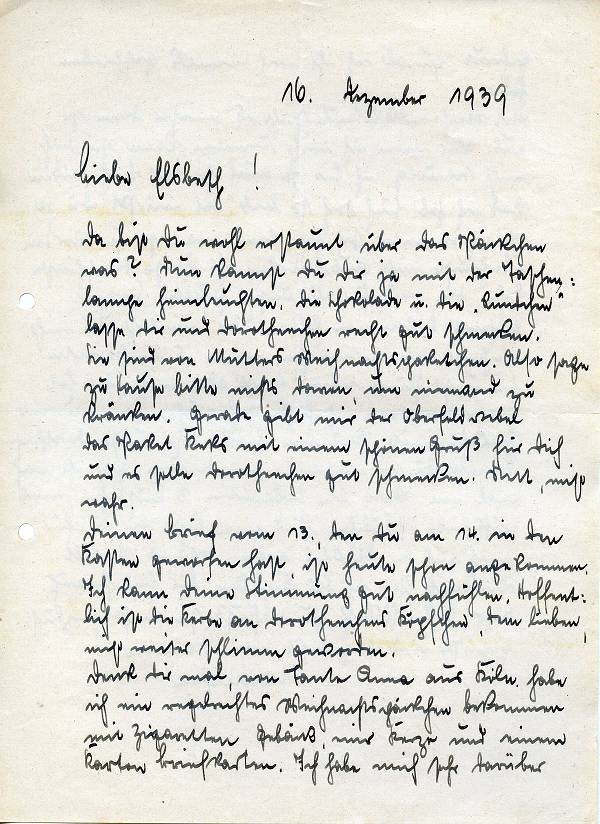 16. Dezember 1939
Liebe Elsbeth!
Da bist Du wohl erstaunt über das Päckchen
was? Nun kannst Du Dir ja mit der Taschen=
lampe heimleuchten. Die Schokolade u. die
lasse Dir und Dorothenchen recht gut schmecken.
Sie sind von Mutters Weihnachtspaketchen. Also sage
zu Hause bitte nichts davon, um niemand zu
kränken. Gerade gibt mir der Oberfeldwebel
das Paket Keks mit einem schönen Gruß für Dich
und es solle Dorothenchen gut schmecken. Nett, nicht
wahr.
Deinen Brief vom 13., den Du am 14. in den
Kasten geworfen hast, ist heute schon angekommen.
Ich kann Deine Stimmung gut nachfühlen. Hoffent=
lich ist die Kerbe an Dorothenchens Köpfchen, dem lieben,
nicht weiter schlimm geworden.
Denk Dir mal, von Tante Anna aus Köln habe
ich ein regelrechtes Weihnachtspäckchen bekommen
mit Zigaretten, Gebäck, einer Kerze und einem
Karton Briefkarten. Ich habe mich sehr darüber